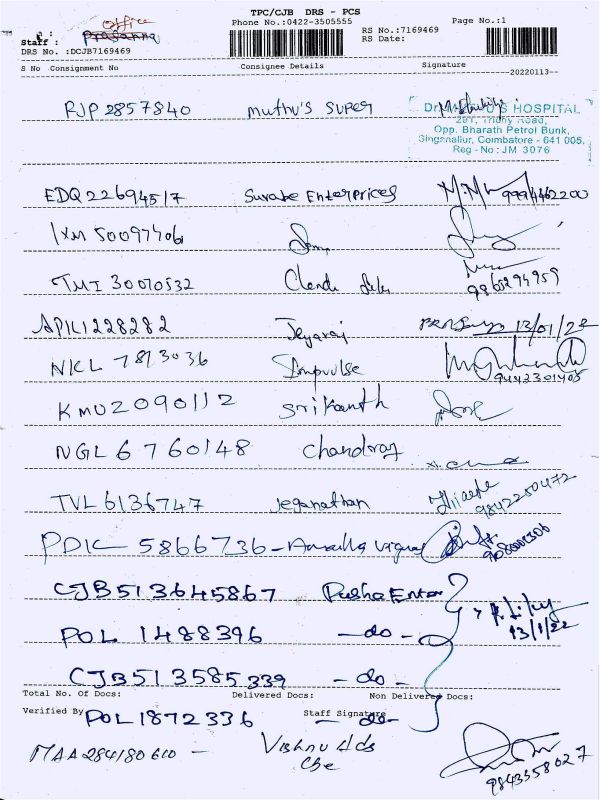 TPC/CJB DRS - PCS
Office
Staff : Prasanna
Phone No.:0422-3505555
Page No.:1
RS No.:7169469
DRS No. :DCJB7169469
RS Date:
S No Consignment No Consignee Details Signature
20220113
RJP 2857840 Muthu's Super
Dr. HOSPITAL
Opp. Bharath Petrol Bunk,
Singanallur, Coimbatore - 641 005.
Reg - No : JM 3076
EDQ22694517 Enterprices 9994462200
IXM 500974061
TMI 30070532 9865294959
APK1228282 Jeyaraj 13/01/22
NKL 7813036 Impulse 9442301405
KMU2090112 Srikanth
NGL 6760148 Chandraj
TVL6136747 Jeganathan 9842250472
PDK 5866736
CJB513645867 Pusha Enter
POL 1488396 - do - 13/1/22
CJB513585339 - do -
Total No. Of Docs: Delivered Docs: Non Delivered Docs:
Verified By POL1872336 Staff Signature - do -
MAA284180610 - Vishnu Hds
Cbe
9843558027